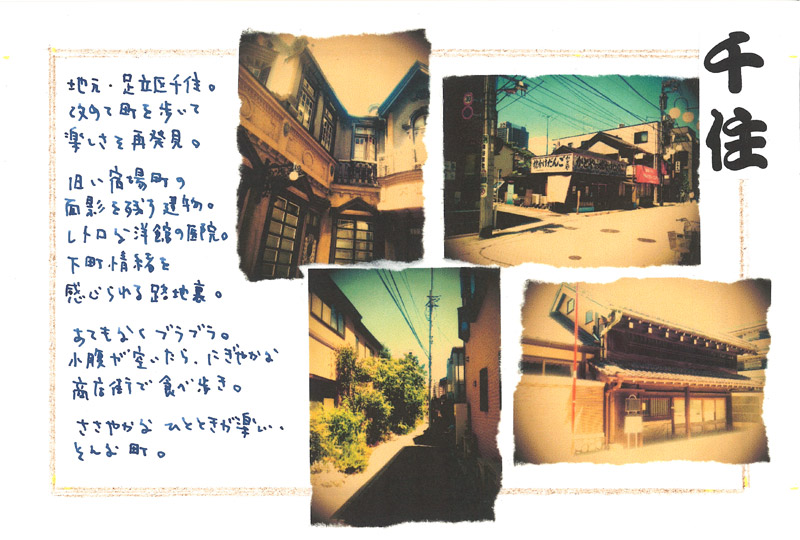 千住
地元・足立区千住。
改めて町を歩いて
楽しさを再発見。
旧い宿場町の
面影を残す建物。
レトロな洋館の医院。
下町情緒を
感じられる路地裏。
あてもなくブラブラ。
小腹が空いたら、にぎやかな
商店街で食べ歩き。
ささやかな ひとときが楽しい、
そんな町。
かりんとう
槍かけだんご